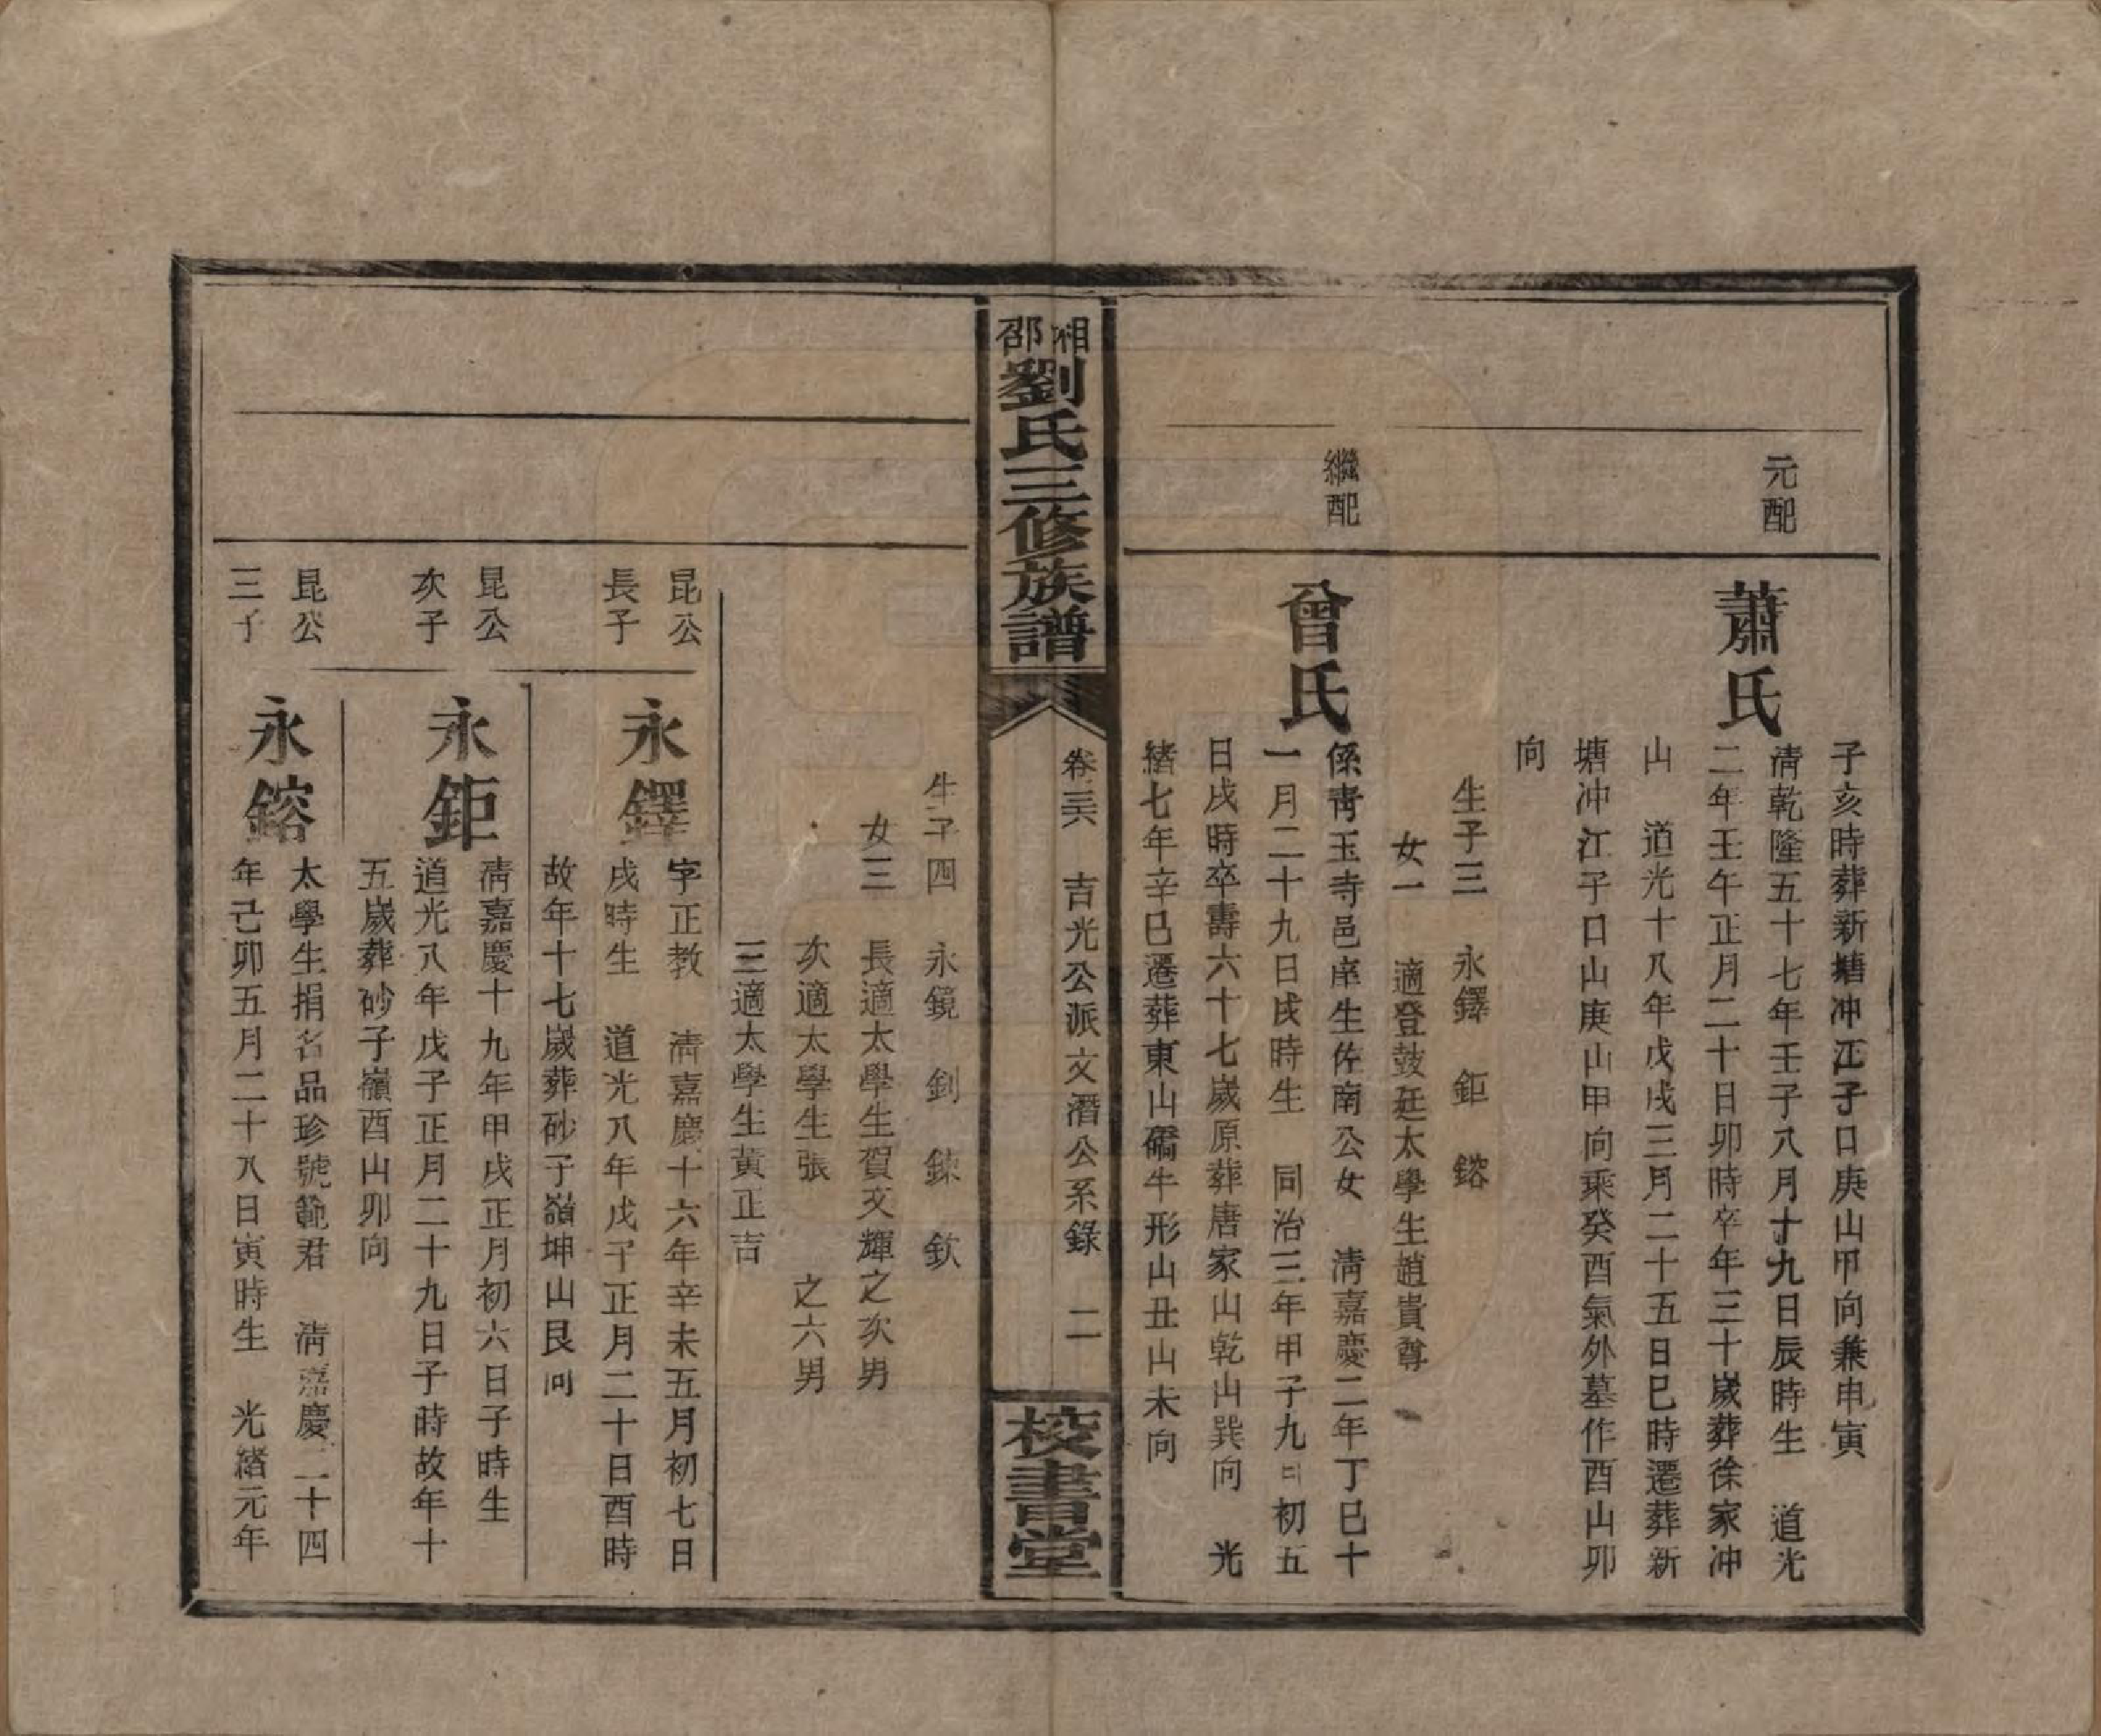 子亥時葬新塘冲江子口庚山甲向兼申寅
元配
蕭氏
清乾隆五十七年壬子八月十九日辰時生　道光
二年壬午正月二十日卯時卒年三十歲葬徐家冲
山　道光十八年戊戌三月二十五日巳時遷葬新
塘冲江子口山庚山甲向乘癸酉氣外墓作酉山卯
向
生子三　永鐸　鉅　鎔
女一　適登鼓廷太學生趙貴尊
繼配
曾氏
係青玉寺邑庠生佐南公女　清嘉慶二年丁巳十
一月二十九日戌時生　同治三年甲子九日初五
日戌時卒壽六十七歲原葬唐家山乾山巽向　光
緒七年辛巳遷葬東山礄牛形山丑山未向
湘邵劉氏三修族譜
卷三六　吉光公派文潛公系錄　二
校書堂
生子四　永鏡　釗　鋉　欽
女三　長適太學生賀文輝之次男
次適太學生張　　之六男
三適太學生黃正吉
昆公
長子
永鐸
字正教　清嘉慶十六年辛未五月初七日
戌時生　道光八年戊子正月二十日酉時
故年十七歲葬砂子嶺坤山艮向
昆公
次子
永鉅
清嘉慶十九年甲戌正月初六日子時生
道光八年戊子正月二十九日子時故年十
五歲葬砂子嶺酉山卯向
昆公
三子
永鎔
太學生捐名品珍號範君　清嘉慶二十四
年己卯五月二十八日寅時生　光緒元年